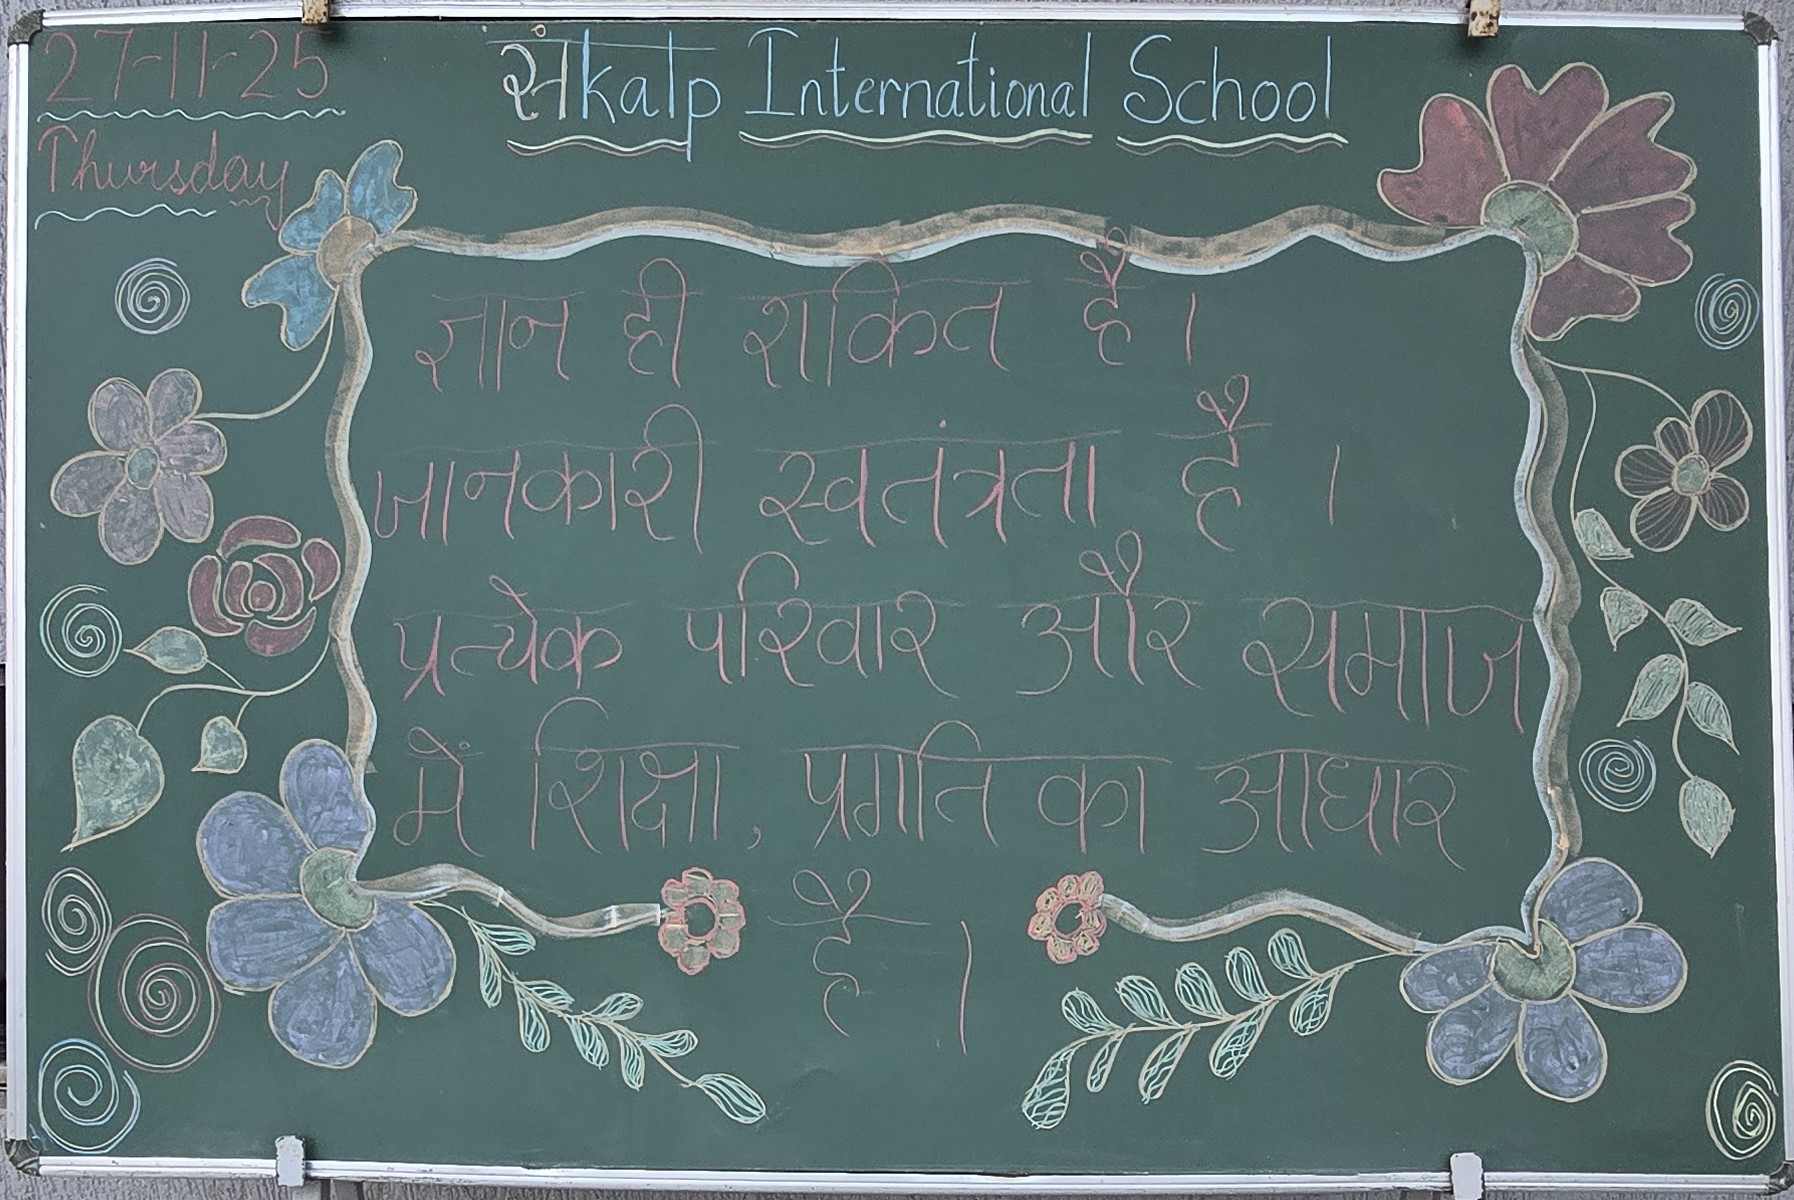 27-11-25
संkalp International School
Thursday
ज्ञान ही शक्ति है।
जानकारी स्वतंत्रता है ।
प्रत्येक परिवार और समाज
में शिक्षा, प्रगति का आधार
है ।